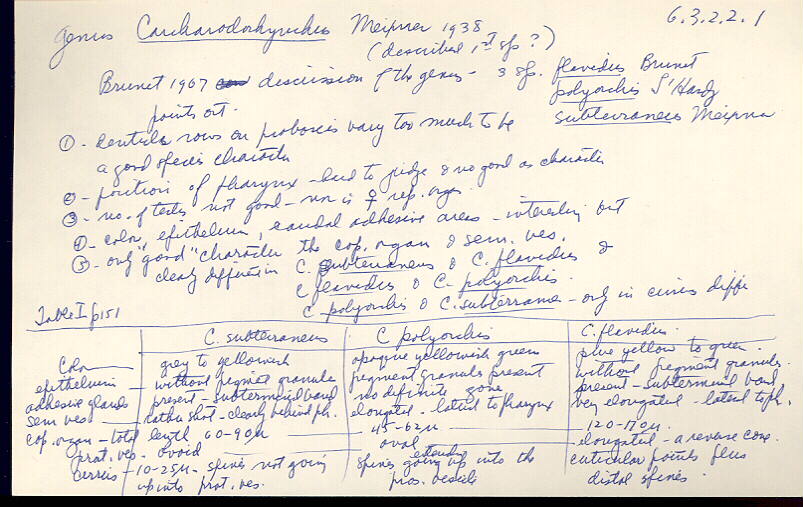 6.3.2.2.1
Genus Carcharodorhynchus Meixner 1938
(described 1st sp?)
Brunet 1967 discussion of the genus - 3 sp. flavidus Brunet
polyorchis L'Hardy
subterraneus Meixner
points out.
① - denticle rows on proboscis vary too much to be
a good species character
② - position of pharynx - hard to judge & no good as character
③ - no. of testes not good - nor is ♀ rep. orgs.
④ - color, epithelium, caudal adhesive areas - interesting but
⑤ - only "good" character the cop. organ & sem. ves.
clearly different in C. subterraneus & C. flavidus &
C flavidus & C. polyorchis.
C polyorchis & C. subterraneus - only in cirrus diff
Table I p151
C. subterraneus C polyorchis C. flavidus.
Color grey to yellowish opaque yellowish green pure yellow to green.
epithelium - without pigment granules pigment granules present without pigment granules.
adhesive glands present - subterminal band no definite zone present - subterminal band
sem ves rather short - clearly behind ph. elongated - lateral to pharynx very elongated - lateral to ph.
cop. organ - total length 60-90µ 45-62µ 120-170µ.
prat. ves. - ovoid oval elongated - a reverse cone.
cirrus 10-25µ - spines not going spines extending going up into the cuticular points plus
up into prat. ves. pros. vesicle distal spines.